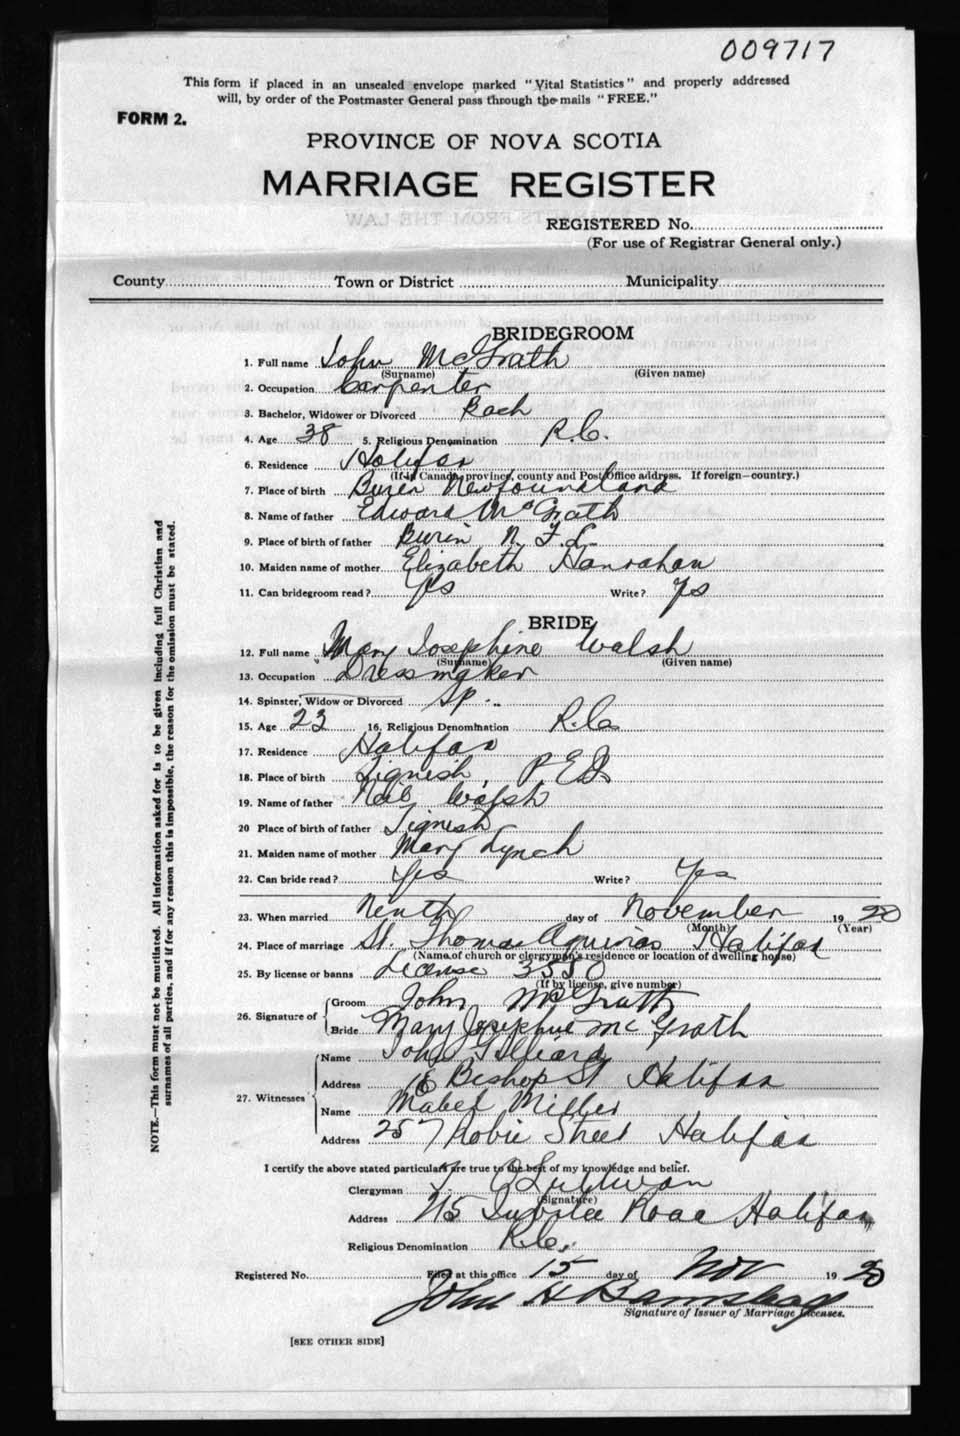 009717
This form if placed in an unsealed envelope marked "Vital Statistics" and properly addressed
will, by order of the Postmaster General pass through the mails "FREE."
FORM 2.
PROVINCE OF NOVA SCOTIA
MARRIAGE REGISTER
REGISTERED No.
(For use of Registrar General only.)
County Town or District Municipality
BRIDEGROOM
1. Full name John McGrath
(Surname) (Given name)
2. Occupation Carpenter
3. Bachelor, Widower or Divorced Bach
4. Age 38 5. Religious Denomination R.C.
6. Residence Halifax
(If in Canada, province, county and Post Office address. If foreign—country.)
7. Place of birth Burin Newfoundland
8. Name of father Edward McGrath
9. Place of birth of father Burin N.F.L.
10. Maiden name of mother Elizabeth Hanrahan
11. Can bridegroom read? Yes Write? Yes
BRIDE
12. Full name Mary Josephine Walsh
(Surname) (Given name)
13. Occupation Dressmaker
14. Spinster, Widow or Divorced Sp.
15. Age 23 16. Religious Denomination R.C.
17. Residence Halifax
18. Place of birth Tignish, P.E.I.
19. Name of father Walsh
20 Place of birth of father Tignish
21. Maiden name of mother Mary Lynch
22. Can bride read? Yes Write? Yes
23. When married Ninth day of November 1920
(Month) (Year)
24. Place of marriage St. Thomas Aquinas Halifax
(Name of church or clergyman's residence or location of dwelling house)
25. By license or banns License 3580
(If by license, give number)
26. Signature of Groom John McGrath
Bride Mary Josephine McGrath
27. Witnesses Name John
Address Bishop St Halifax
Name Mabel Miller
Address 257 Robie Street Halifax
I certify the above stated particulars are true to the best of my knowledge and belief.
Clergyman O'Sullivan
(Signature)
Address 215 Jubilee Road Halifax
Religious Denomination R.C.
Registered No. Filed at this office 15 day of Nov 1920
John H
Signature of Issuer of Marriage Licenses.
[SEE OTHER SIDE]
NOTE.—This form must not be mutilated. All information asked for is to be given including full Christian and
surnames of all parties, and if for any reason this is impossible, the reason for the omission must be stated.